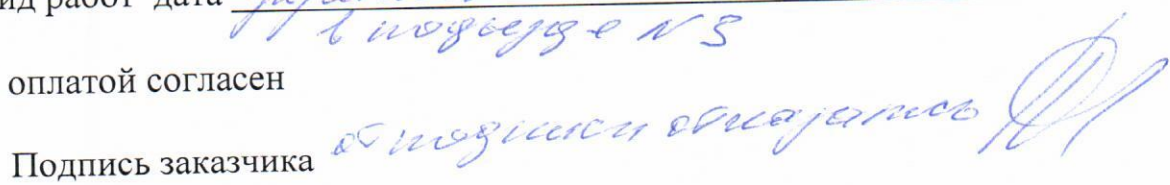 ид работ дата
в подъезде № 3
оплатой согласен
Подпись заказчика от подписи отказались